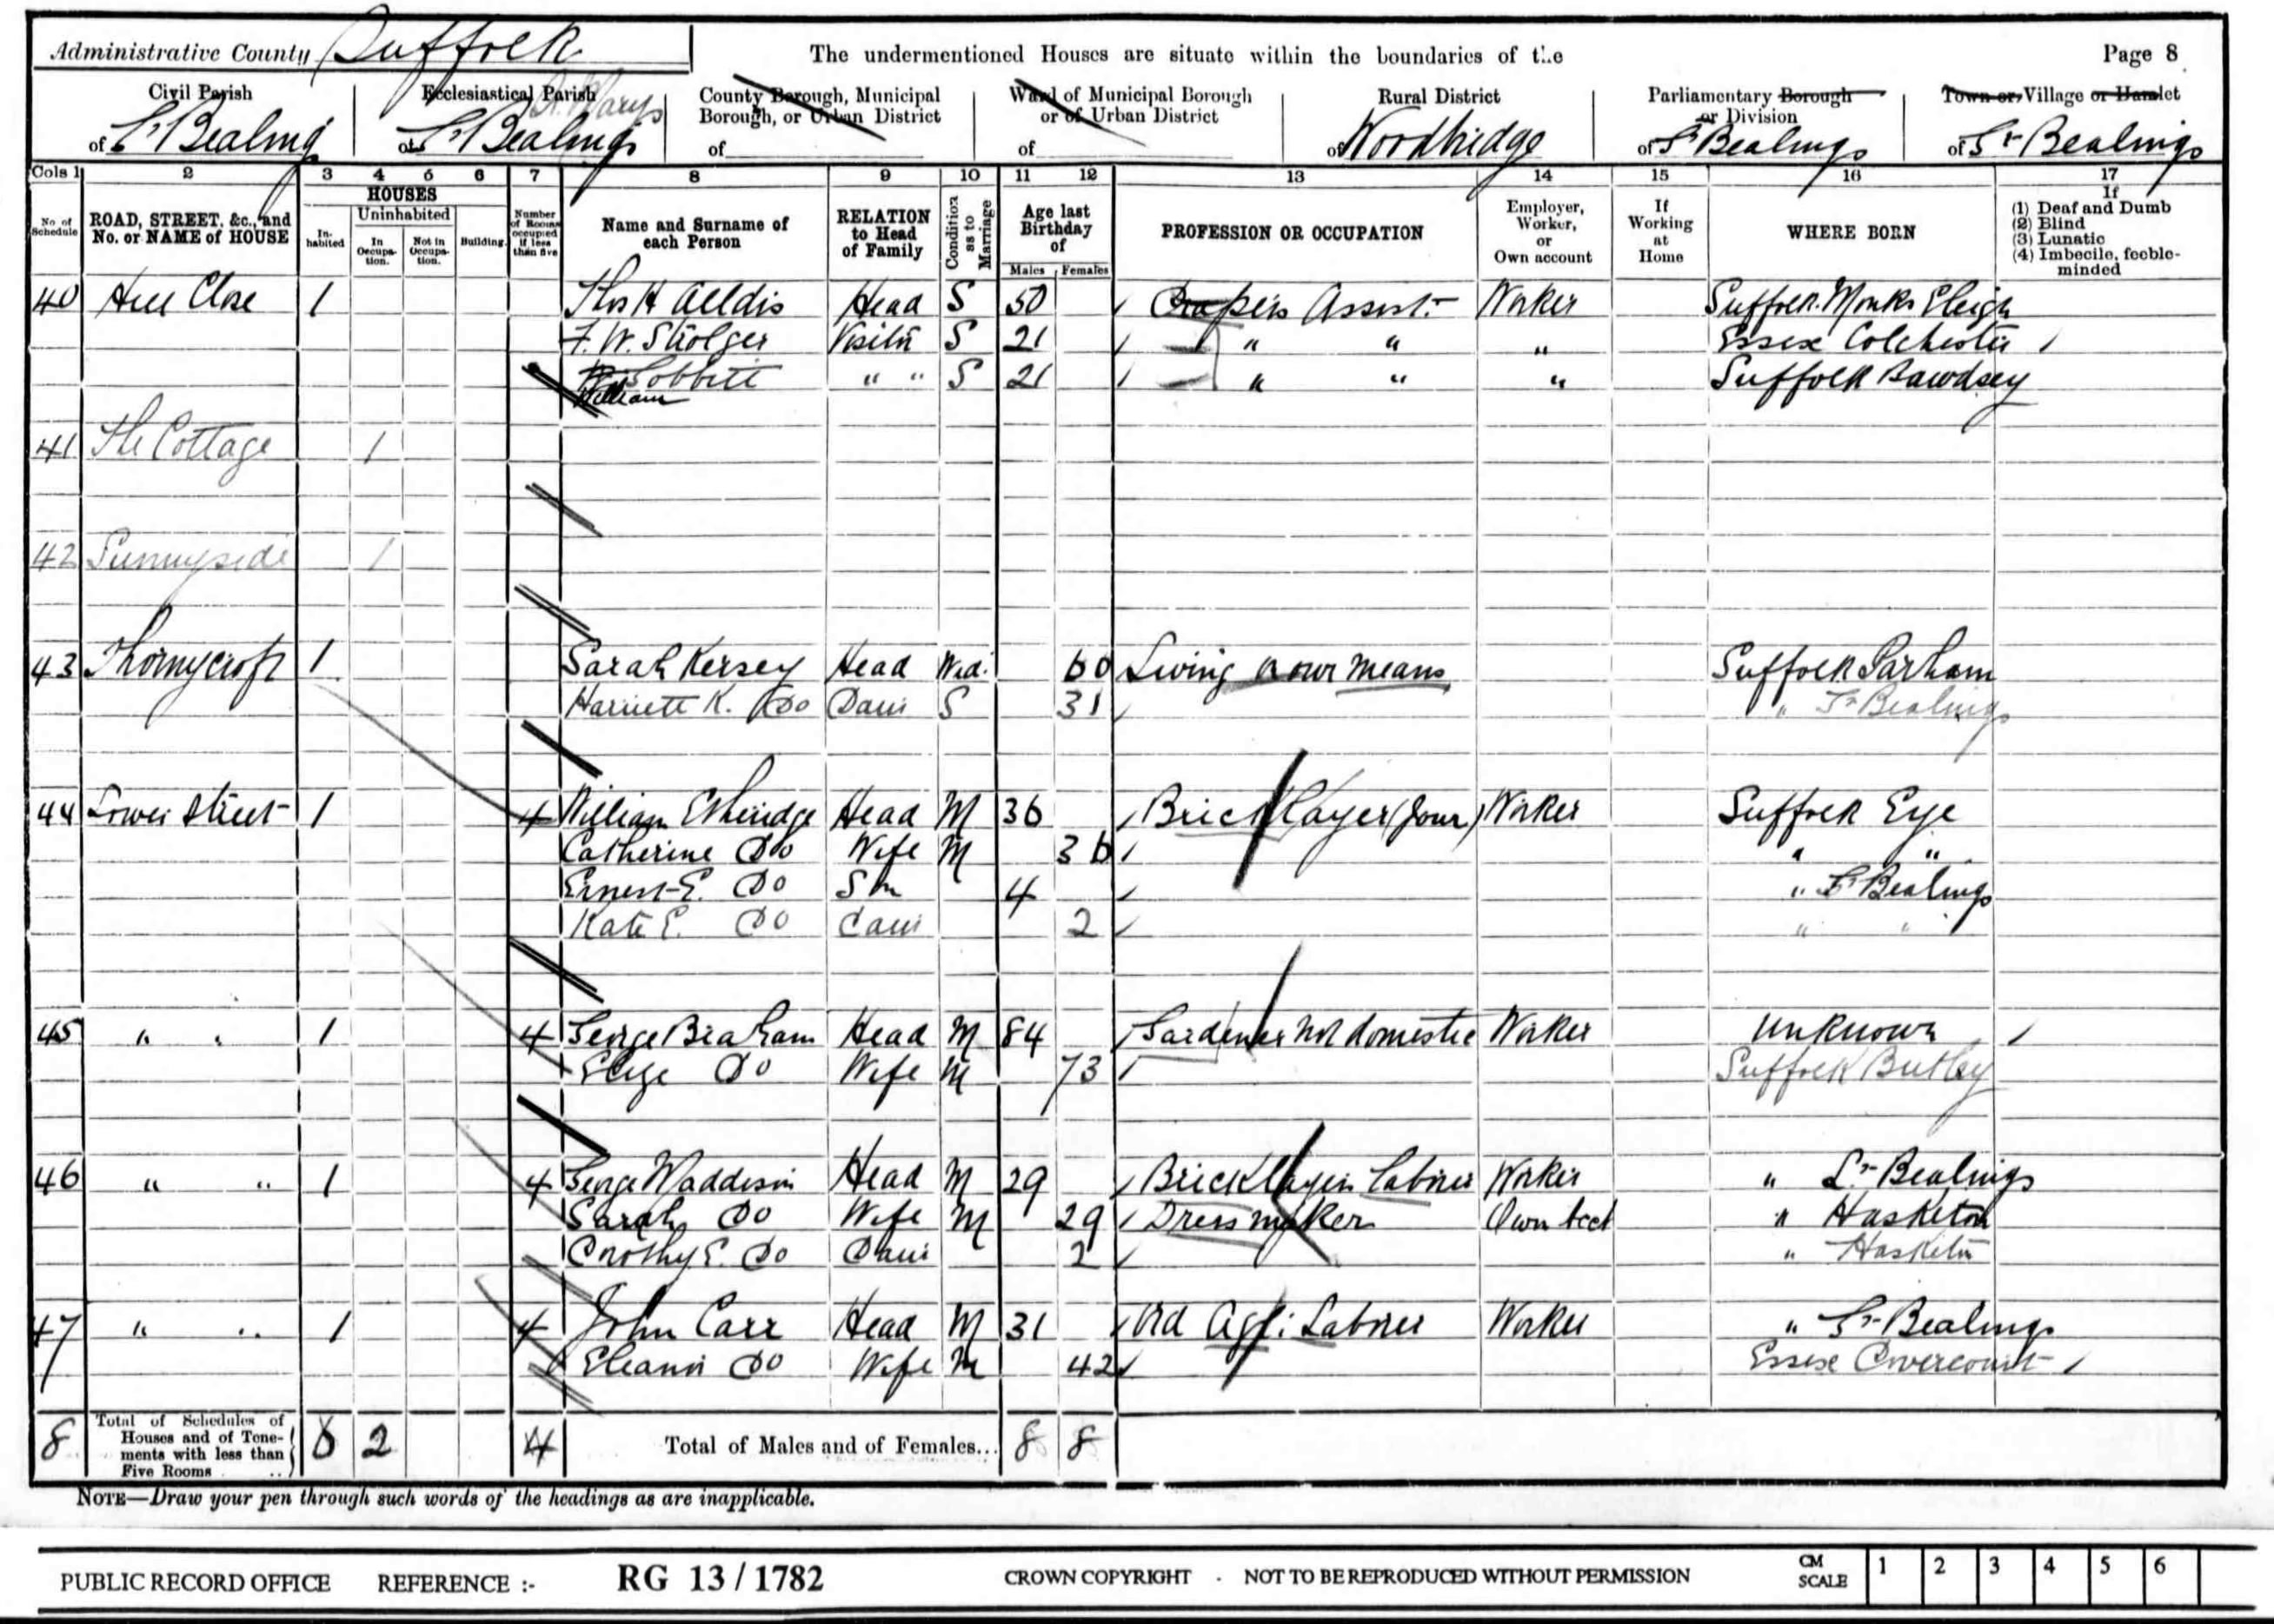 Administrative County Suffolk The undermentioned Houses are situate within the boundaries of the Page 8
Civil Parish Ecclesiastical Parish St Marys County Borough, Municipal Borough, or Urban District Ward of Municipal Borough or of Urban District Rural District Parliamentary Borough or Division Town or Village or Hamlet
of Gt Bealings of Gt Bealings of of of Woodbridge of Gt Bealings of Gt Bealings
Cols 1 2 3 4 5 6 7 8 9 10 11 12 13 14 15 16 17
No. of Schedule ROAD, STREET, &c., and No. or NAME of HOUSE HOUSES Inhabited Uninhabited In Occupation. Not in Occupation. Building. Number of Rooms occupied if less than five Name and Surname of each Person RELATION to Head of Family Condition as to Marriage Age last Birthday of Males Females PROFESSION OR OCCUPATION Employer, Worker, or Own account If Working at Home WHERE BORN If (1) Deaf and Dumb (2) Blind (3) Lunatic (4) Imbecile, feeble-minded
40 Hill Close 1 Thos H Aldis Head S 50 Drapers Assist. Worker Suffolk Monks Eleigh
F. W. Stolger Visitor S 21 " " " Essex Colchester
William Gobbitt " " S 21 " " " Suffolk Bawdsey
41 The Cottage 1
42 Sunnyside 1
43 Thornycroft 1 Sarah Kersey Head Wid. 60 Living own means Suffolk Parham
Harriett K. Do Daur S 31 " Gt Bealings
44 Lower Street 1 4 William Etheridge Head M 36 Bricklayer (Jour) Worker Suffolk Eye
Catherine Do Wife M 36 " "
Ernest E. Do Son 4 " Gt Bealings
Kate E. Do Daur 2 " "
45 " " 1 4 George Braham Head M 84 Gardener not domestic Worker Unknown
Elize Do Wife M 73 Suffolk Butley
46 " " 1 4 George Waddison Head M 29 Bricklayers Labourer Worker " Lt Bealings
Sarah Do Wife M 29 Dressmaker Own Acct " Hasketon
Dorothy E. Do Daur 2 " Hasketon
47 " " 1 4 John Carr Head M 31 Ord Agl: Labourer Worker " Gt Bealings
Eleanor Do Wife M 42 Essex Dovercourt
8 Total of Schedules of Houses and of Tenements with less than Five Rooms 6 2 4 Total of Males and of Females... 8 8
NOTE—Draw your pen through such words of the headings as are inapplicable.
PUBLIC RECORD OFFICE REFERENCE :- RG 13 / 1782 CROWN COPYRIGHT - NOT TO BE REPRODUCED WITHOUT PERMISSION CM SCALE 1 2 3 4 5 6